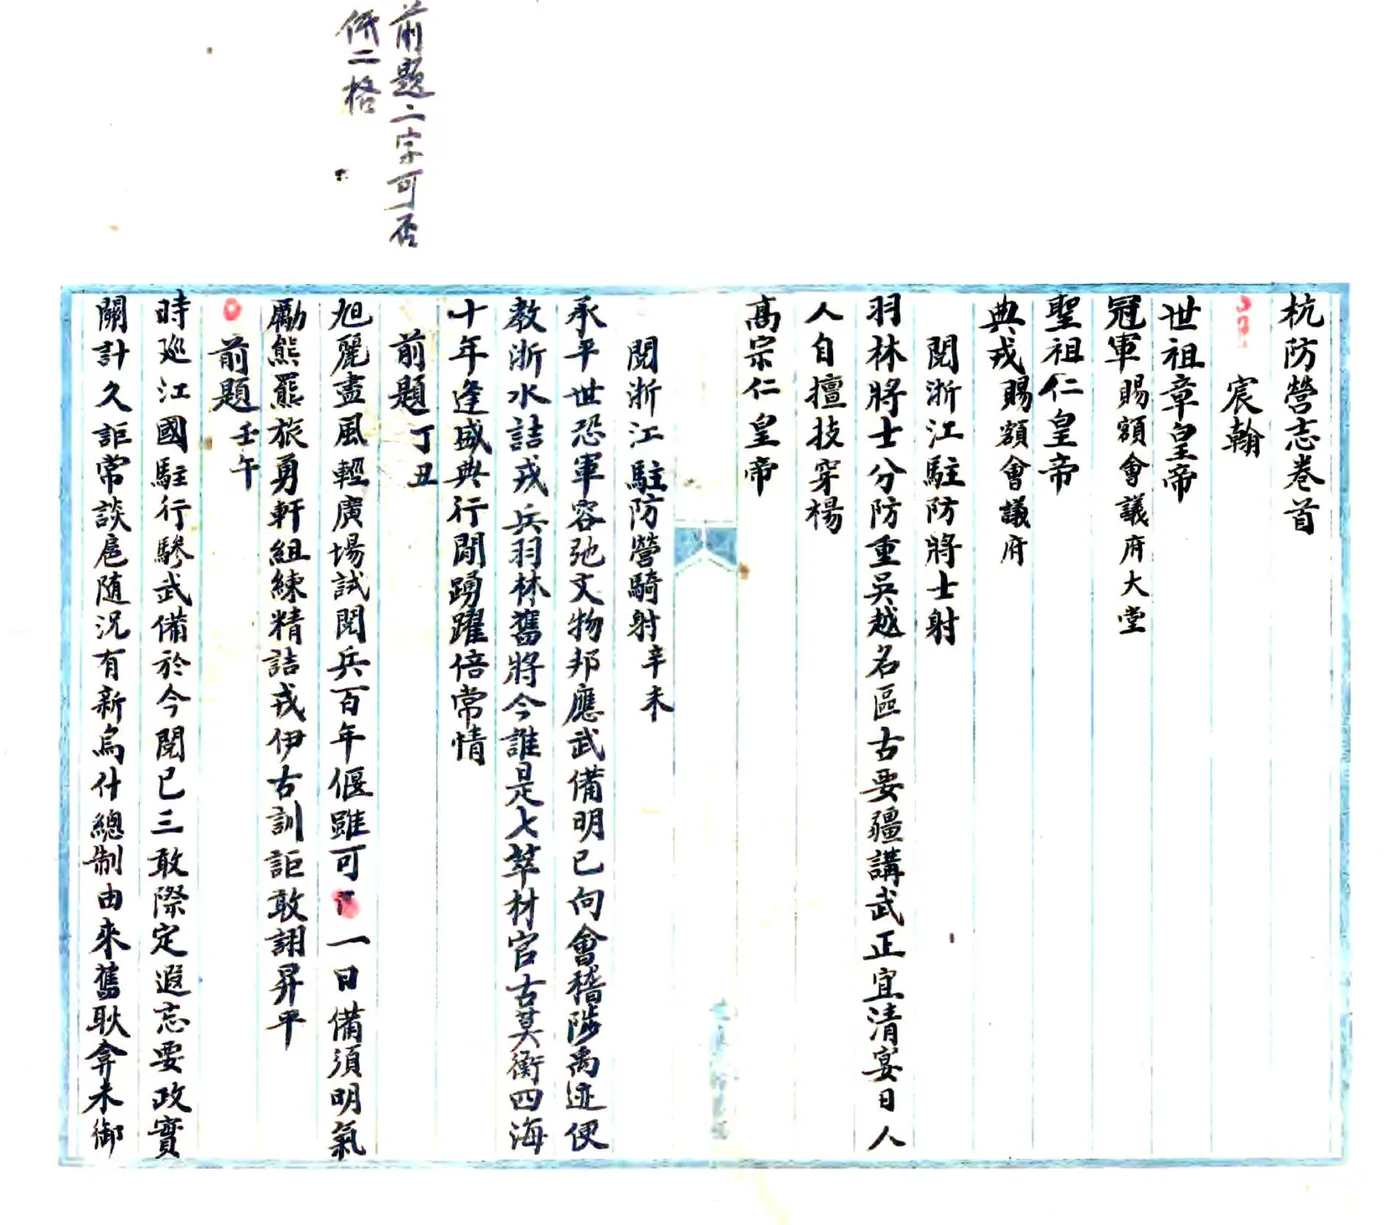 前題二字可否
低二格
杭防營志卷首
宸翰
世祖章皇帝
冠軍賜額會議府大堂
聖祖仁皇帝
典戎賜額會議府
閱浙江駐防將士射
羽林將士分防重吳越名區古要疆講武正宜清宴日人
人自擅技穿楊
高宗仁皇帝
閱浙江駐防營騎射辛未
承平世恐軍容弛文物邦應武備明已向會稽陟禹迹便
教浙水詰戎兵羽林舊將今誰是七萃材官古莫衡四海
十年逢盛典行間踴躍倍常情
前題丁丑
旭麗盡風輕廣場試閱兵百年偃雖可一日備須明氣
勵熊羆旅勇軒組練精詰戎伊古訓詎敢詡昇平
前題壬午
時廵江國駐行驂武備於今閱已三敢際定遐忘要政實
關計久詎常談扈随况有新烏什總制由來舊耿弇未御